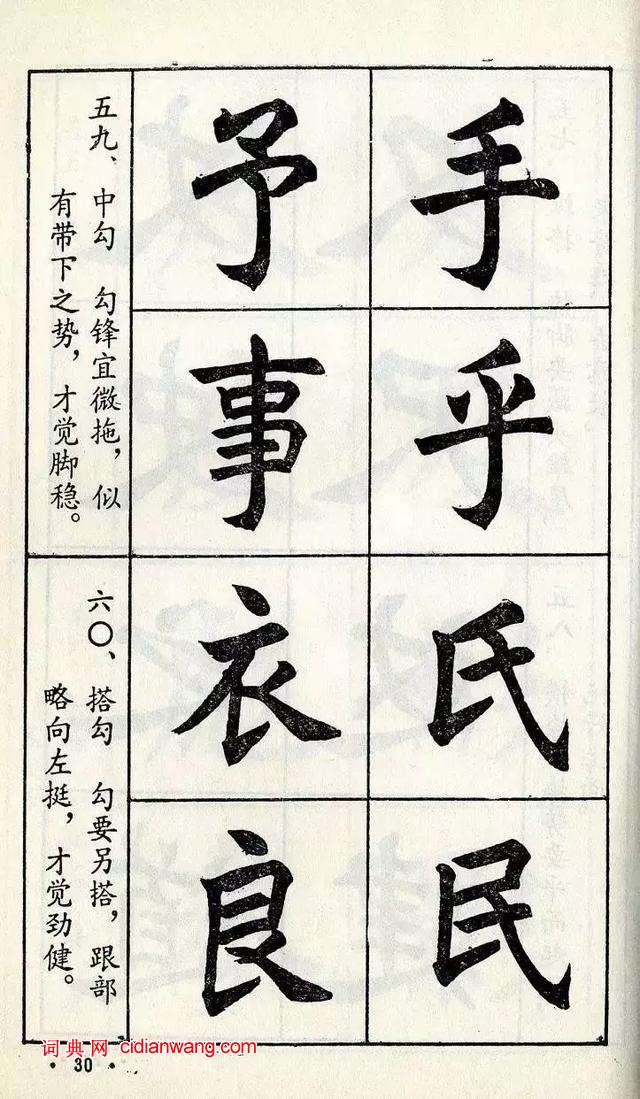 手予
乎事
五九、中勾　勾锋宜微拖，似
有带下之势，才觉脚稳。
氏衣
民良
六〇、搭勾　勾要另搭，跟部
略向左挺，才觉劲健。
词典网 cidianwang.com
·30·